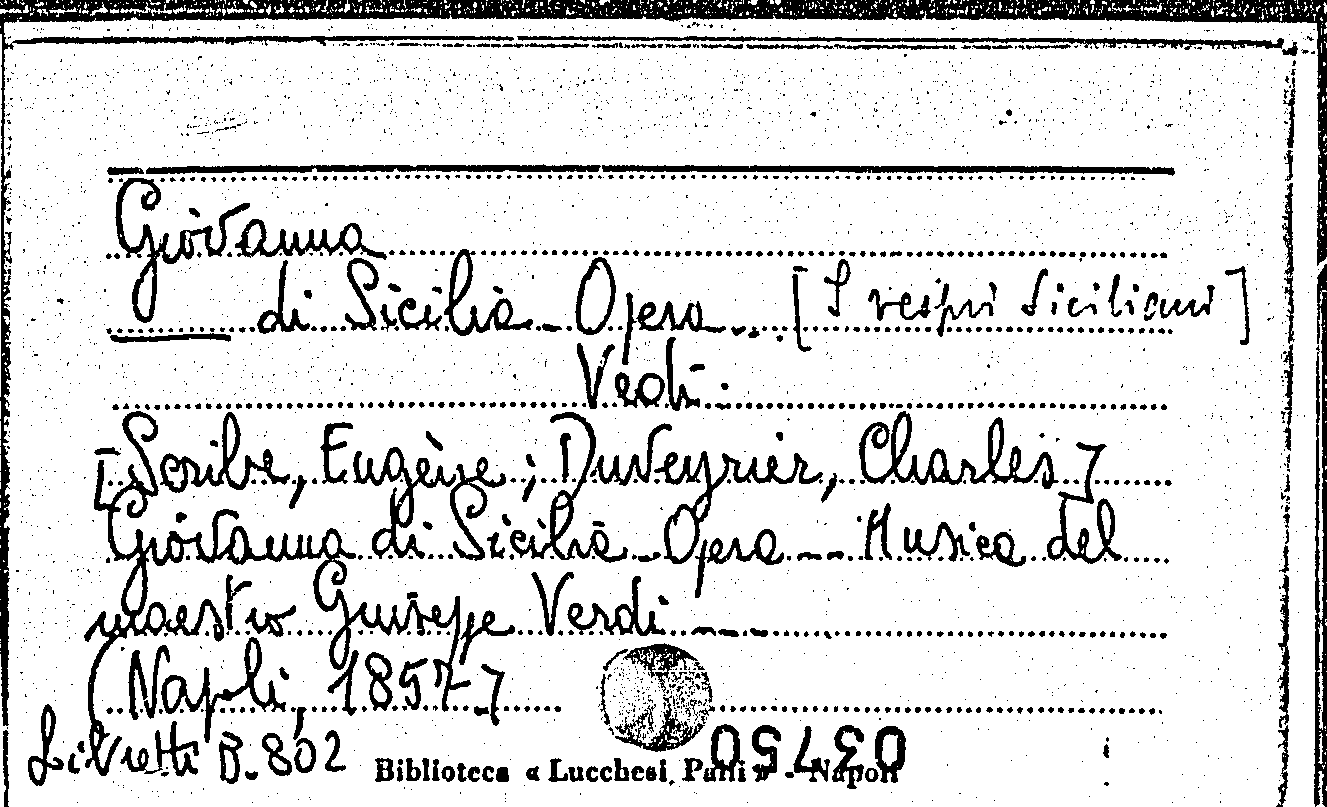 Giovanna
di Sicilia - Opera ... [I vespri siciliani]
Vedi:
[Scribe, Eugène; Duveyrier, Charles]
Giovanna di Sicilia - Opera -- Musica del
maestro Giuseppe Verdi ---
(Napoli, 1857]
Libretti B. 802
Biblioteca « Lucchesi Palli » - Napoli